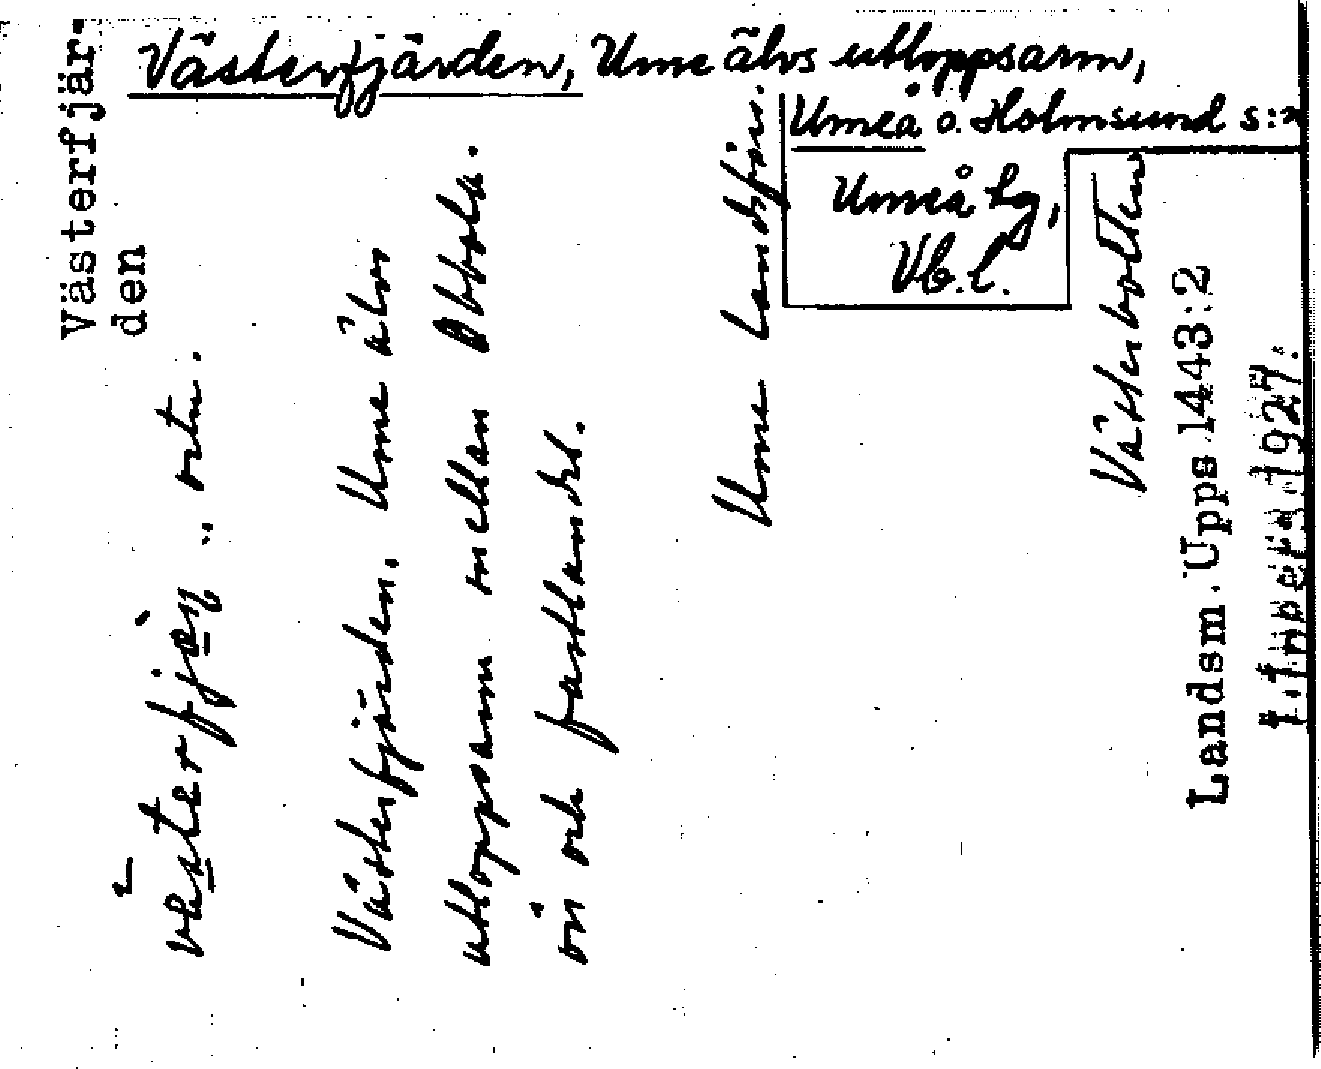 Västerfjärden, Ume älvs utloppsarm,
Umeå o. Holmsund s:n
Umeå hg,
Vb.l.
Västerfjär-
den
ortn.
Västerfjärden, Ume älvs
utloppsarm mellan Obbola.
ön och fastlandet.
Ume landsförs.
Västerbotten
Landsm. Upps. 1443:2
1927.